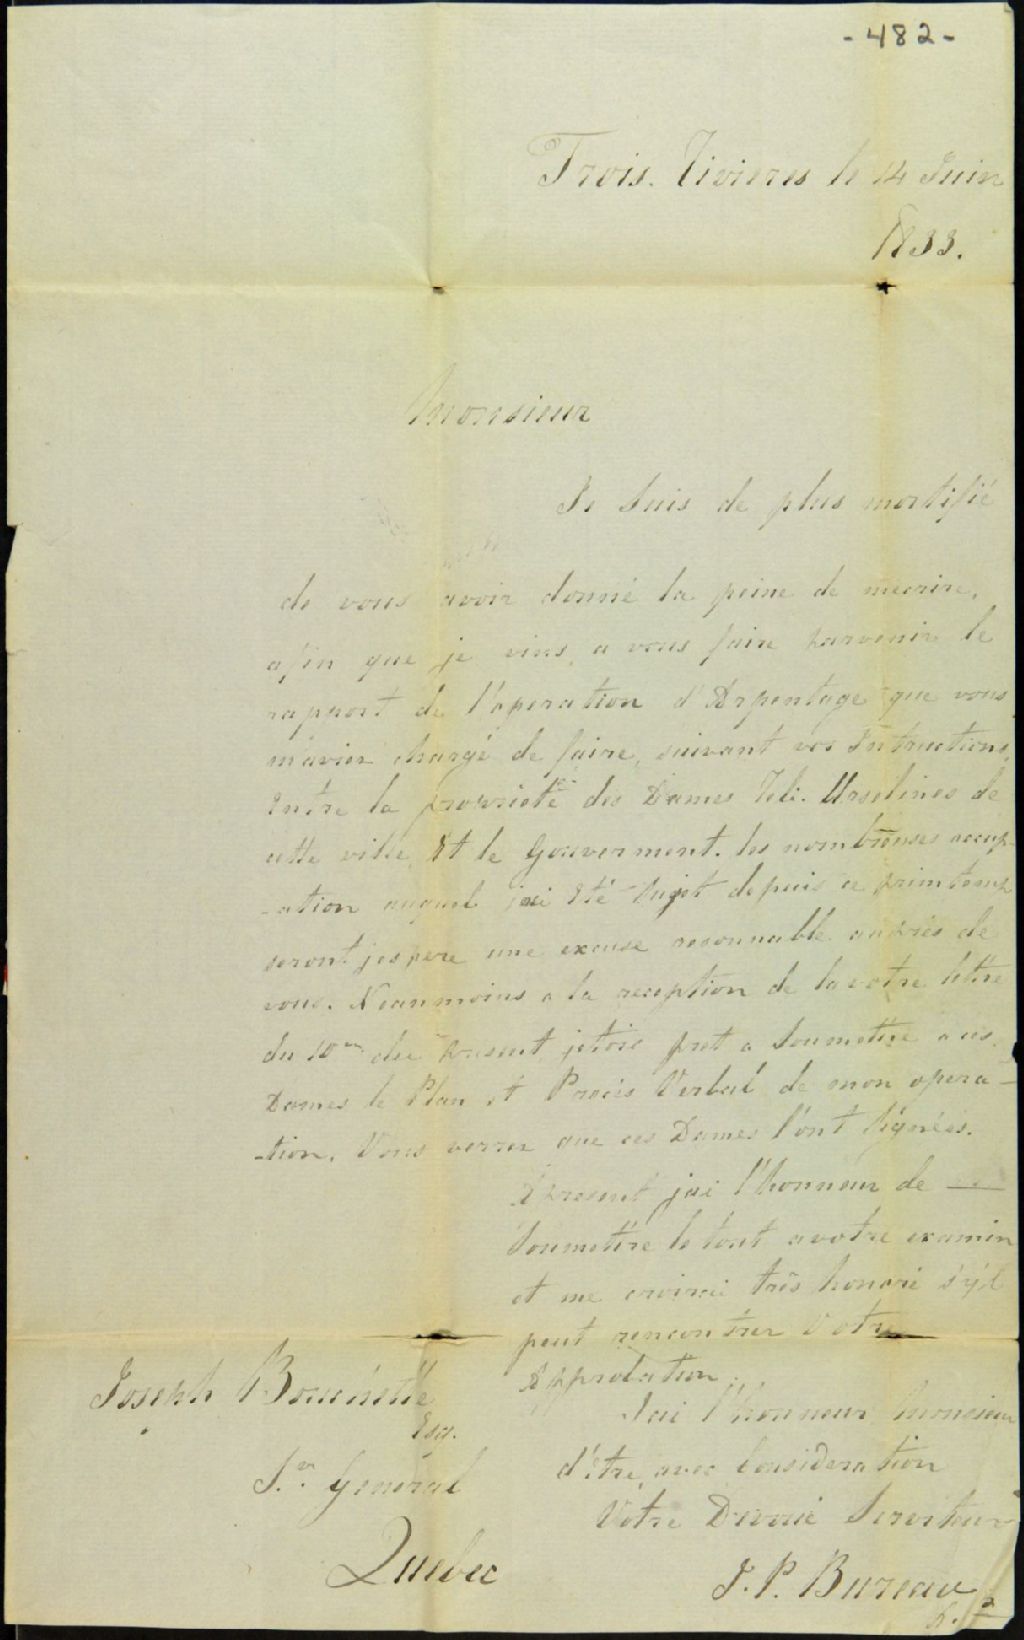 - 482 -
Trois. Rivieres le 14 Juin
1833.
Monsieur
Je Suis de plus mortifié
de vous avoir donné la peine de mecrire,
afin que je vins a vous faire parvenir le
rapport de l'operation d'Arpentage que vous
m'aviez chargé de faire, suivant vos Instructions,
Entre la propriete des Dames Urselines de
cette ville Et le Gouverment. les nombreuses occup-
-ation auquel jai Eté Sujet depuis ce printemp
seront jespere une excuse resonnable auprès de
vous. Neanmoins a la reception de la votre lettre
du 10 du present, jetois pret a Soumettre a ces
Dames le Plan et Procès Verbal de mon opera-
-tion. Vous verrez que ces Dames l'ont Signées.
Apresent jai l'honneur de
Soumettre le tout a votre examin
et me croirai très honoré s'yl
peut rencontrer Votre
Approbation.
Jai l'honneur Monsieur
d'être avec Consideration
Votre Devoué Serviteur
J. P. Bureau
Joseph Bouchette
Esq.
S.or General
Quebec